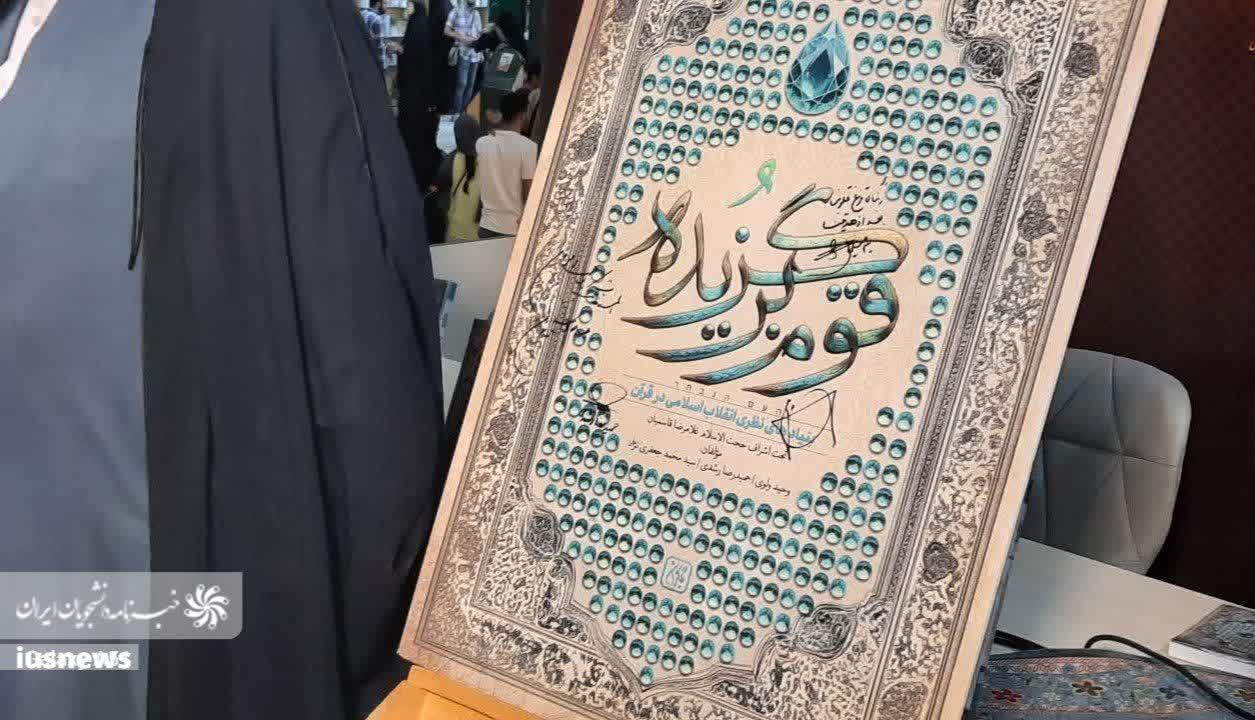 قوم برگزیده
העם הנבחר
بنیادهای نظری انقلاب اسلامی در قرآن
تحت اشراف حجت الاسلام غلامرضا قاسمیان
مؤلفان
وحید ولوی | حمیدرضا رشدی | سید محمد جعفری نژاد
خبرنامه دانشجویان ایران
iusnews